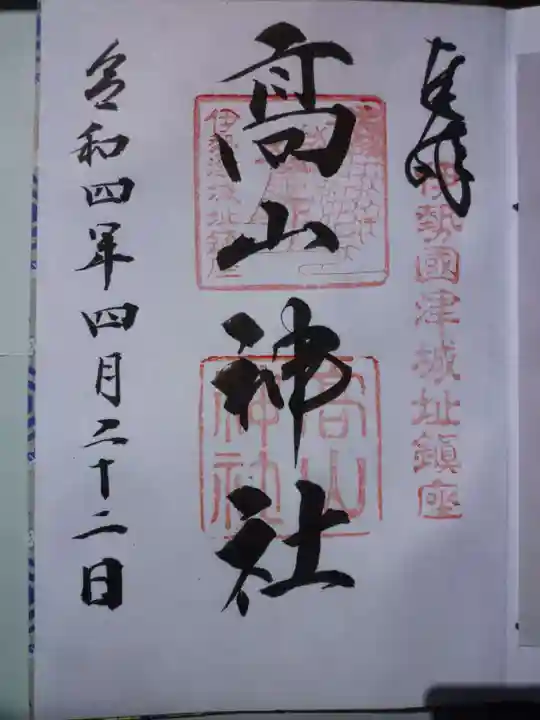 奉拝
伊勢國津城址鎮座
髙山神社
高山
神社
令和四年四月二十二日